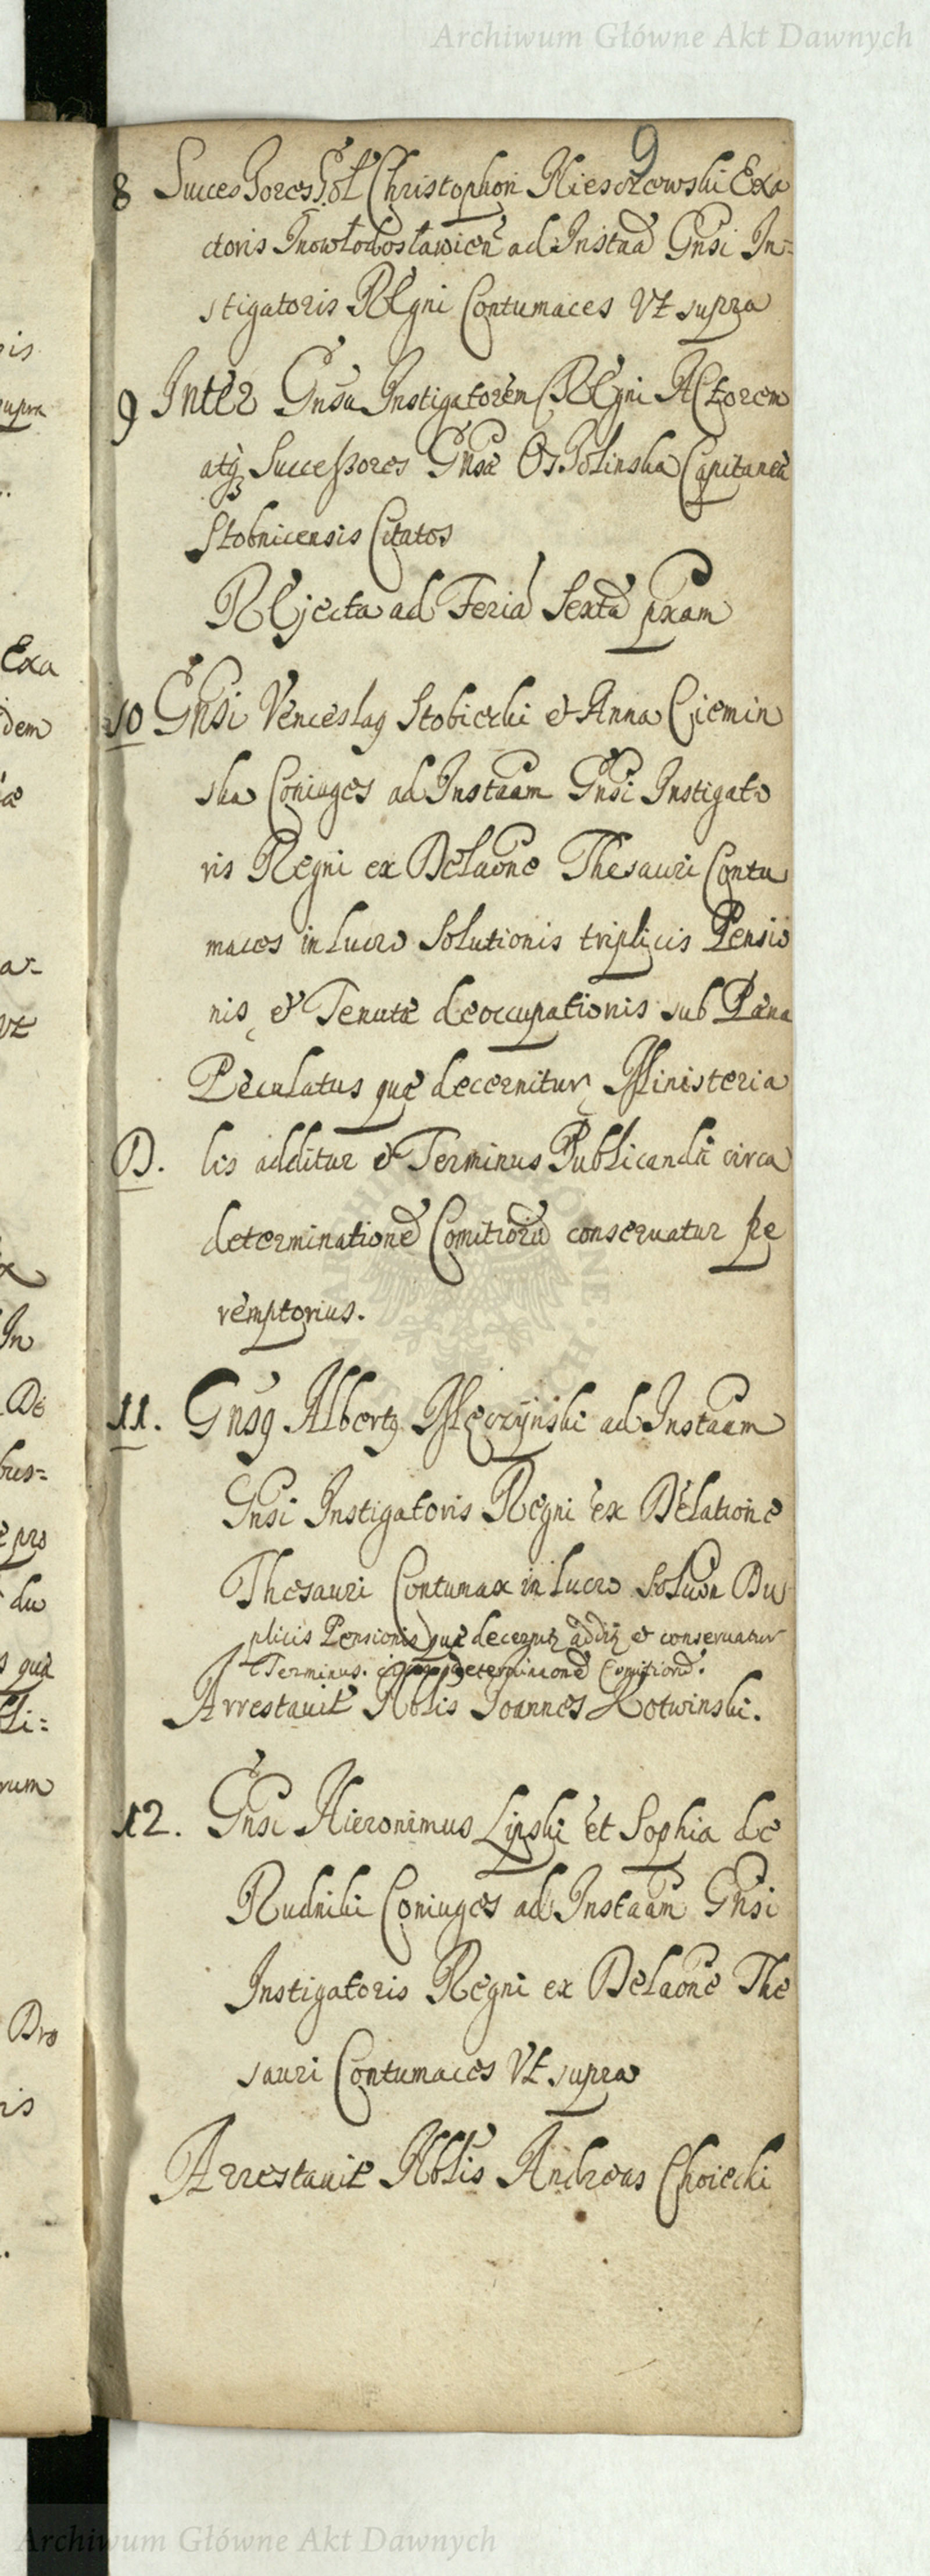 Archiwum Główne Akt Dawnych
9
8 Successores Christophori Exa
ctoris ad Instnã Gnsi In=
stigatoris Regni Contumaces Vt supra
9 Inter Gnsũ Instigatorem Regni Actorem
atq3 Successores Gnsæ Capitaneæ
Stobnicensis Citatos
Rejecta ad Feriã Sextã pxam
10 Gnsi Venceslaq Stobiecki et Anna Ciemin
ska Coniuges ad Instãam Gnsi Instigato
ris Regni ex Delaõne Thesauri Contu
maces in Lucro Solutionis triplicis Pensio
nis, et Tenutæ deoccupationis sub Pæna
Peculatus quæ decernitur, Ministeria
D. lis additur et Terminus Publicandũ circa
determinationẽ Comitiorũ conseruatur pe
remptorius.
11. Gnsq Albertq Męczyński ad Instãam
Gnsi Instigatoris Regni ex Delatione
Thesauri Contumax in Lucro Du
plicis Pensionis quæ et conseruatur
Terminus. Comitiorũ.
Arrestauit Nblis Joannes Kotwinski.
12. Gnsi Hieronimus Lipski et Sophia de
Rudniki Coniuges ad Instãam Gnsi
Instigatoris Regni ex Delaõne The
sauri Contumaces Vt supra
Arrestauit Nblis Andreas Choiecki
Archiwum Główne Akt Dawnych